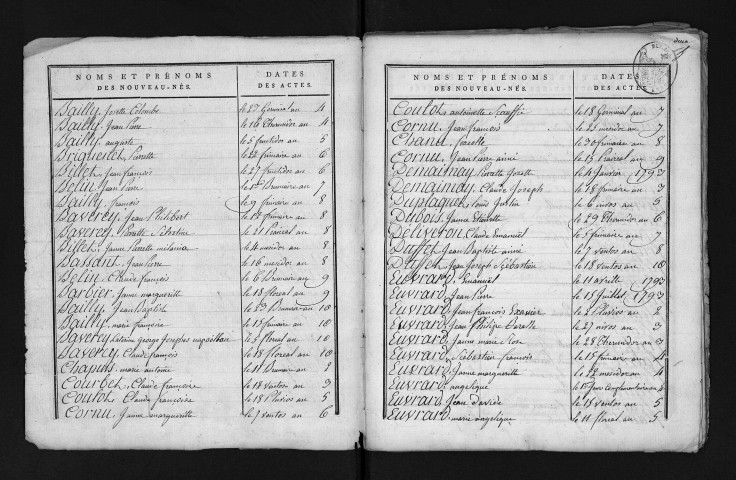 NOMS ET PRÉNOMS DES NOUVEAU-NÉS. DATES DES ACTES.
Bailly, Josette Colombe le 27 Germinal an 4
Bailly, Jean Pierre le 16 thermidor an 4
Bailly, auguste le 5 fructidor an 5
Briqueitet, Pierrette le 22 frimaire an 6
Billet, Jean françois le 27 fructidor an 6
Belin, Jean Pierre Brumaire an 7
Bailly, françois le 9 frimaire an 8
Baverey, Jean Philibert le 12 frimaire an 8
Baverey, Pierrette Célestine le 21 Prairéal an 8
Billet, Jeanne Pierrette mélanie le 4 mesidor an 8
Bassand, Jean Pierre le 16 mesidor an 8
Belin, Claude françois le 6 Brumaire an 9
Barbier, Jeanne marguerite le 18 floreal an 9
Bailly, Jean Baptiste le 23 Brumaire an 10
Bailly, marie françoise le 17 frimaire an 10
Baverey, George Josephe napoléhon le 3 floreal an 10
Baverey, Claude françois le 18 floreal an 10
Chapuis, marie antoine le 11 Brumaire an 2
Courbet, Claude françoise le 12 ventos an 3
Coulot, Claude françoise le 18 Pluvios an 5
Cornu, Jeanne marguerite le 7 ventos an 6
NOMS ET PRÉNOMS DES NOUVEAU-NÉS. DATES DES ACTES.
Coulot, antoinette le 18 Germinal an 7
Cornu, Jean françois le 23 mesidor an 7
Cisanu, Josette le 30 frimaire an 8
Cornu, Jean Pierre aimé le 13 Prairéal an 9
Demaimay, Pierrette Josette le 4 janvier 1793
Demaimay, Claude Joseph le 28 frimaire an 3
Duplaquet, Louis Justin le 6 nivos an 5
Dubois, Jeanne Etiennette le 29 thermidor an 6
Deliveron, Claude Emanuel le 5 frimaire an 7
Duffet, Jean Baptiste aimé le 7 ventos an 8
Duffet, Jean Joseph Sébastien le 18 ventos an 10
Euvrard, Emanuel le 11 avrill 1793
Euvrard, Jean Pierre le 15 Juillet 1793
Euvrard, Jean françois Exavier le 2 Pluvios an 2
Euvrard, Jean Philipe le 27 nivos an 3
Euvrard, Jeanne marie le 28 thermidor an 3
Euvrard, Sébastien françois le 15 frimaire an 4
Euvrard, Jeanne marguerite le 22 mesidor an 4
Euvrard, angelique le 1er Jour Complementaire an 4
Euvrard, Jean davide le 18 ventos an 5
Euvrard, marie angelique le 11 floreal an 5